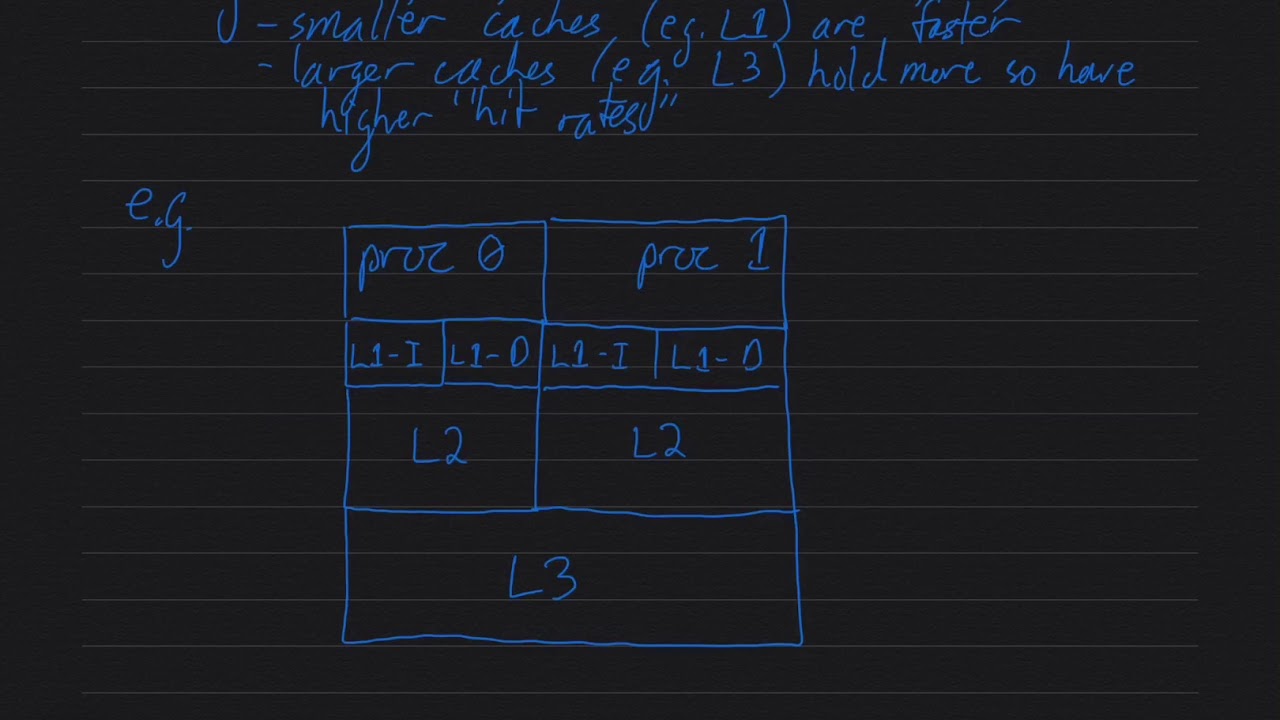 - smaller caches (eg. L1) are faster
- larger caches (e.g. L3) hold more so have
higher "hit rates"
e.g.
proc 0 proc 1
L1-I L1-D L1-I L1-D
L2 L2
L3